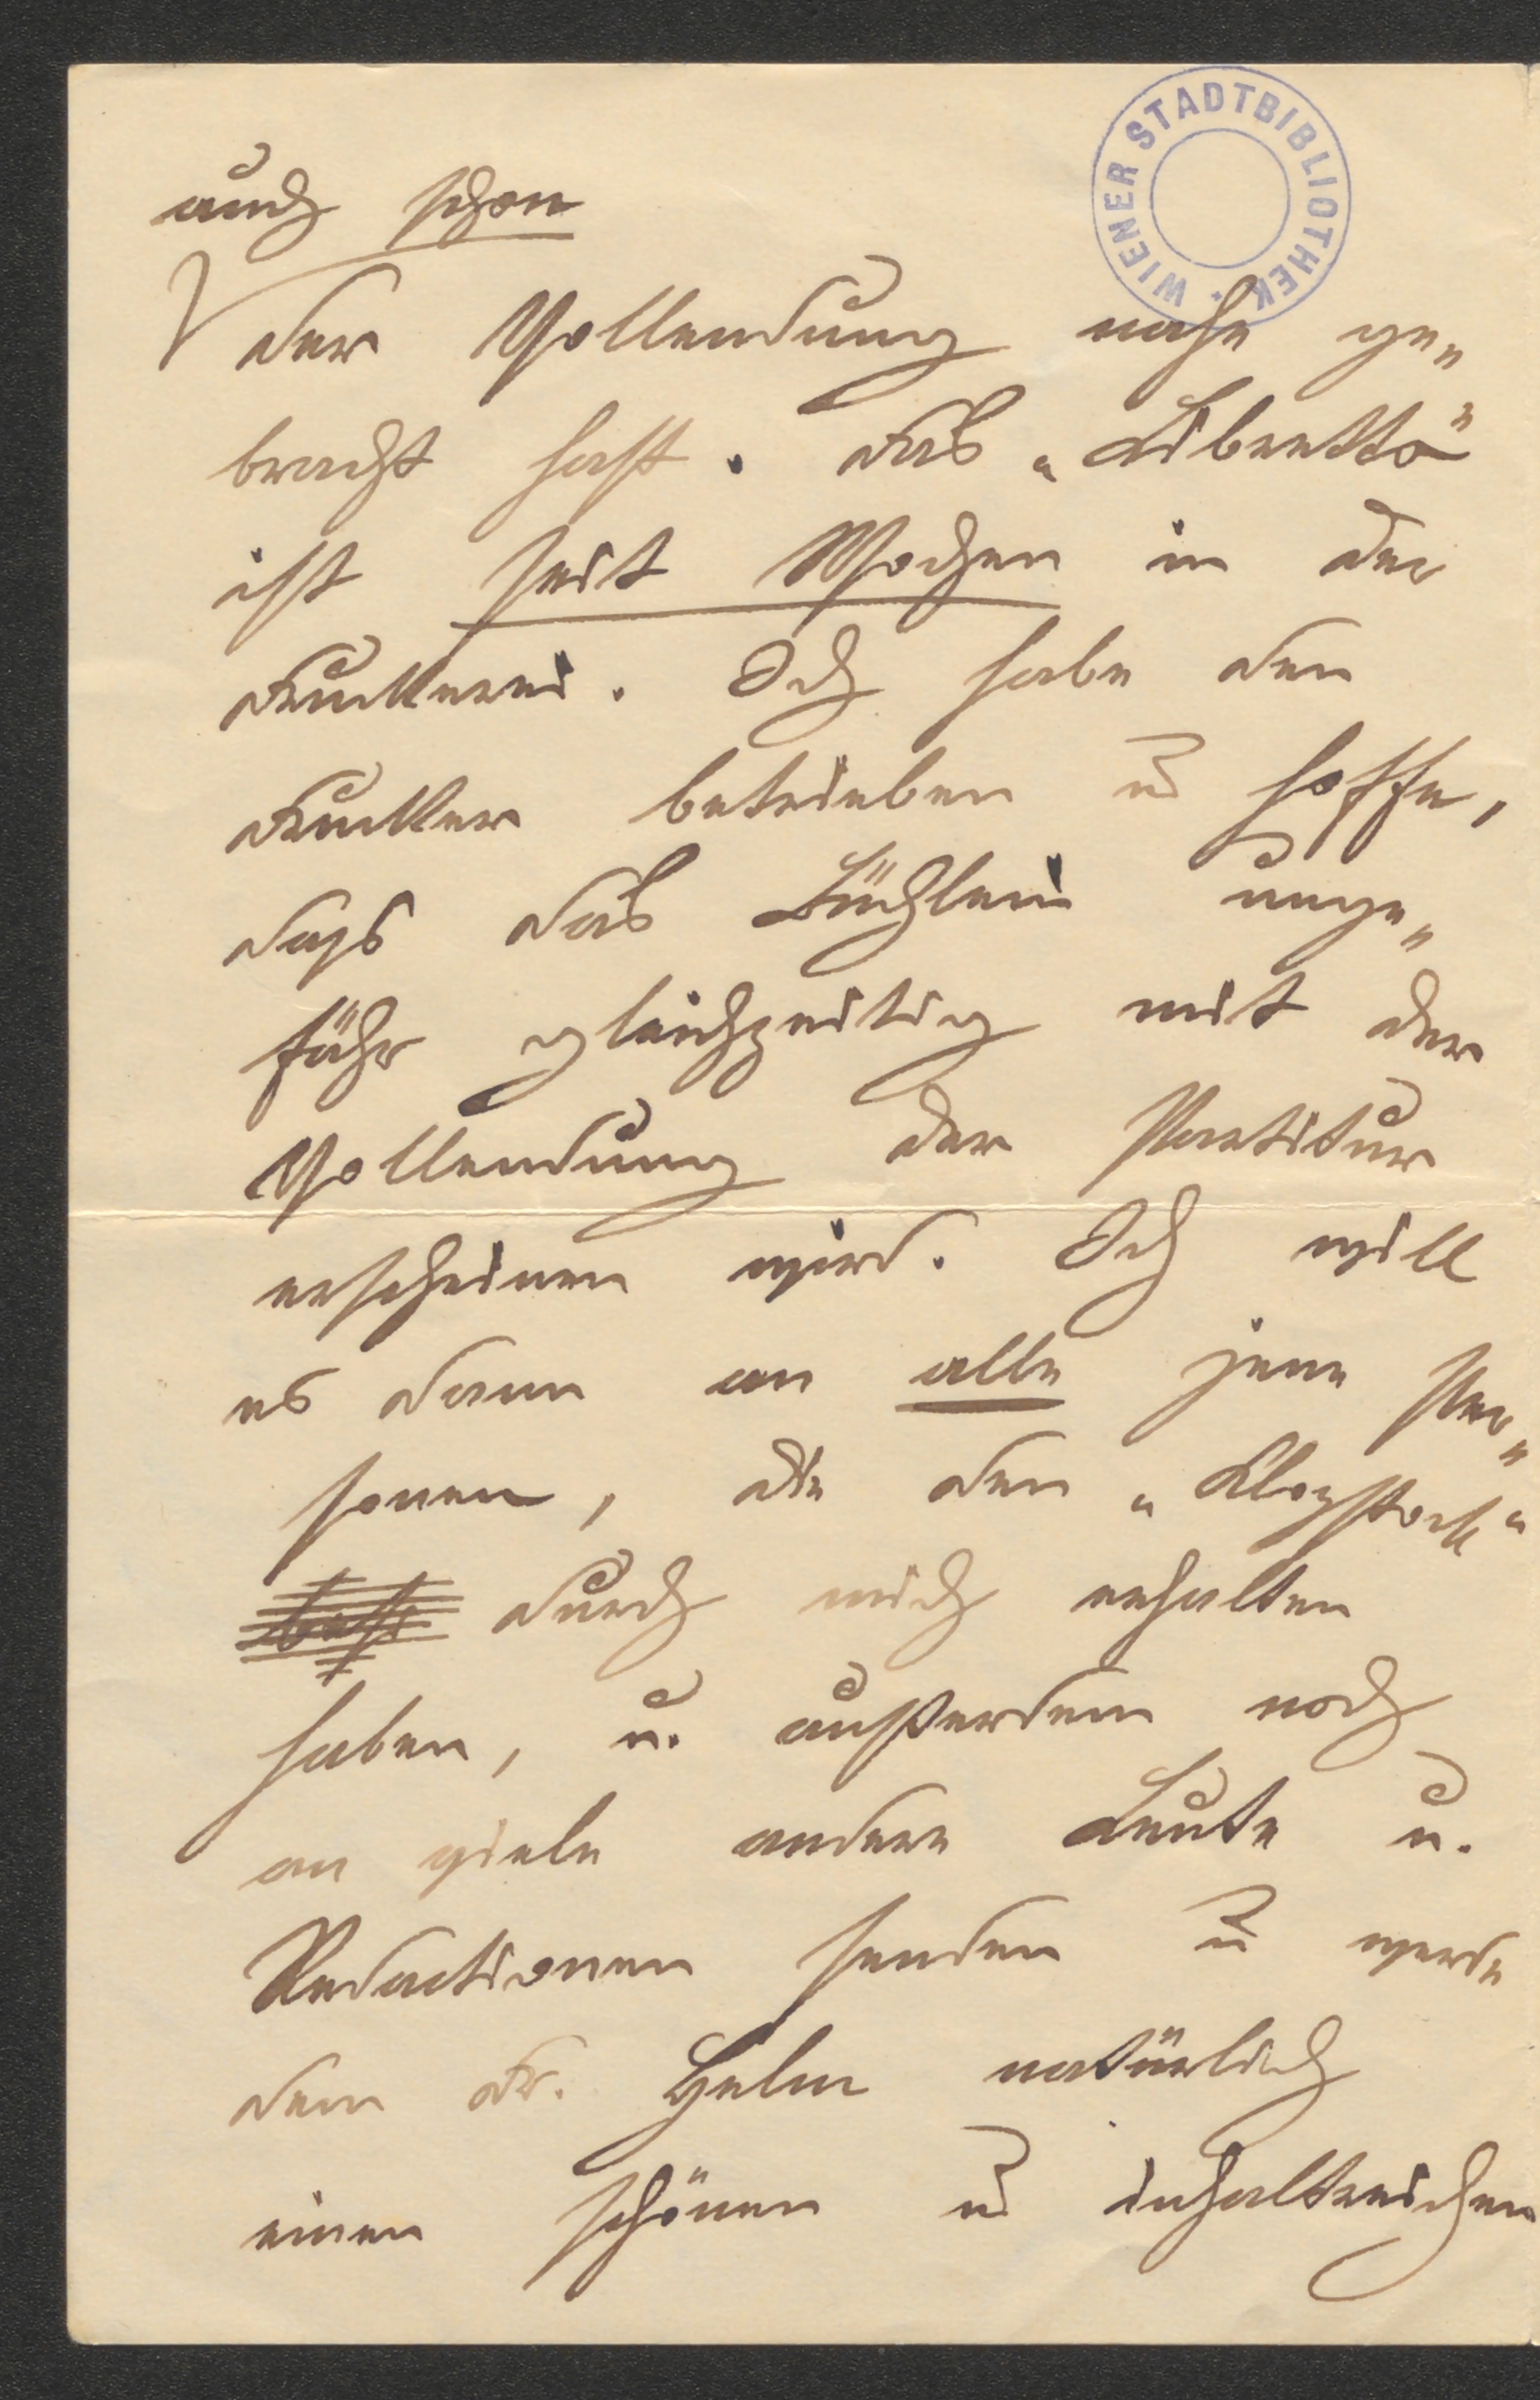 WIENER STADTBIBLIOTHEK
auch schon
der Vollendung nahe ge„
bracht hast. Das „Libretto"
ist seit Wochen in der
Druckerei. Ich habe den
Drucker betrieben u hoffe,
dass das Büchlein unge„
fähr gleichzeitig mit der
Vollendung der Partitur
erscheinen wird. Ich will
es dann an alle jene Per„
sonen, die den „Klopstock"
durch mich erhalten
haben, u. außerdem noch
an viele andere Leute u.
Redactionen senden u werde
dem Dr. Helm natürlich
einen schönen u inhaltreichen